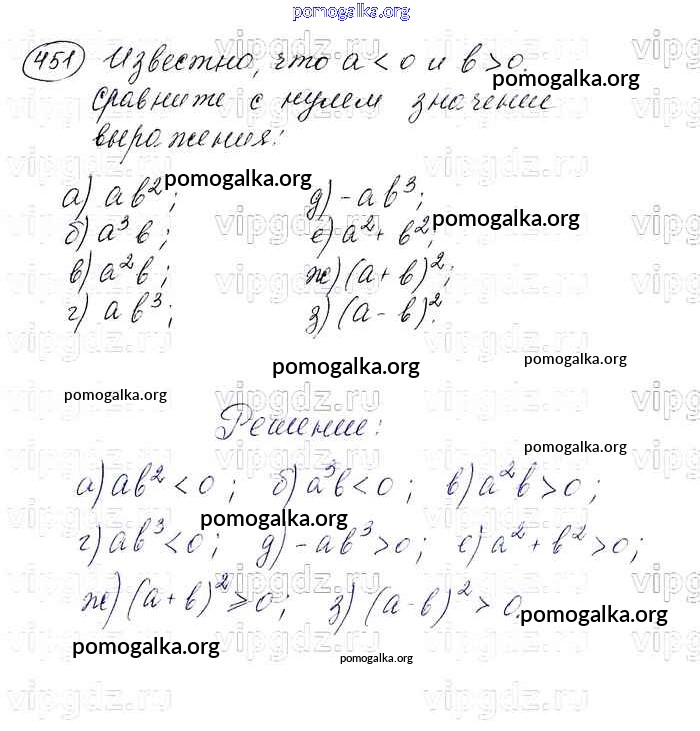 pomogalka.org
451 Известно, что a < 0 и b > 0.
pomogalka.org
сравните с нулем значение
выражения:
а) ab²; pomogalka.org д) -ab³;
б) a³b; е) a² + b²; pomogalka.org
в) a²b; ж) (a + b)²;
г) ab³; з) (a - b)².
pomogalka.org pomogalka.org
pomogalka.org
Решение:
pomogalka.org
а) ab² < 0; б) a³b < 0; в) a²b > 0;
pomogalka.org
г) ab³ < 0; д) -ab³ > 0; е) a² + b² > 0;
ж) (a + b)² ⩾ 0; з) (a - b)² > 0.
pomogalka.org
pomogalka.org
pomogalka.org
vipgdz.ru